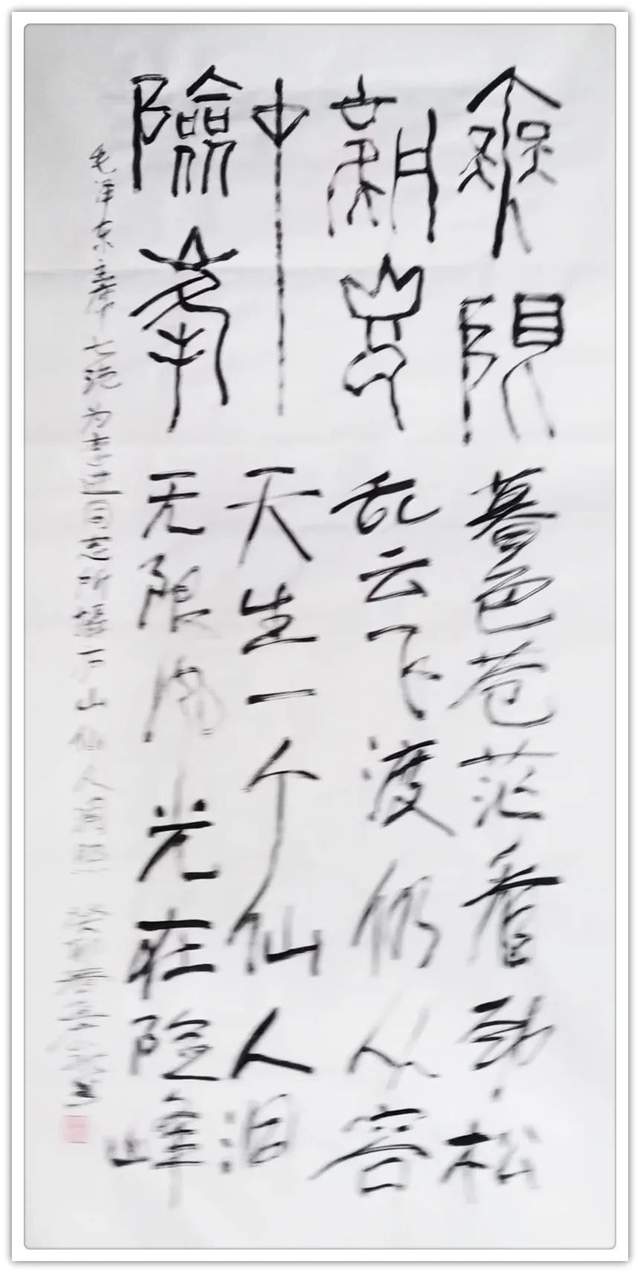 中
險峯
暮色苍茫看劲松
乱云飞渡仍从容
天生一个仙人
无限风光在险峰
毛泽东主席七绝为李进同志所摄庐山仙人洞照 癸卯